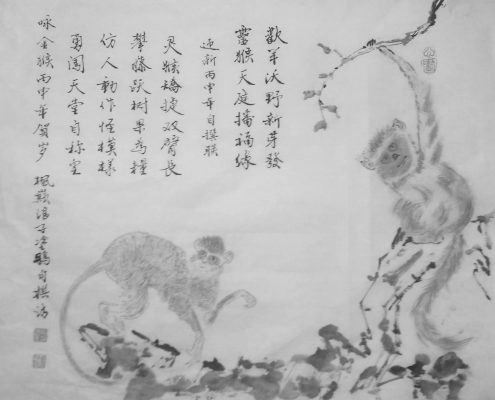 歡羊沃野新芽發
靈猴天庭播福緣
迎新丙申年自撰联
灵猴矯捷双臂長
攀藤跃树果為糧
仿人動作怪模樣
勇闯天堂自称王
咏金猴丙申年賀岁 楓巅浪子 自撰詩